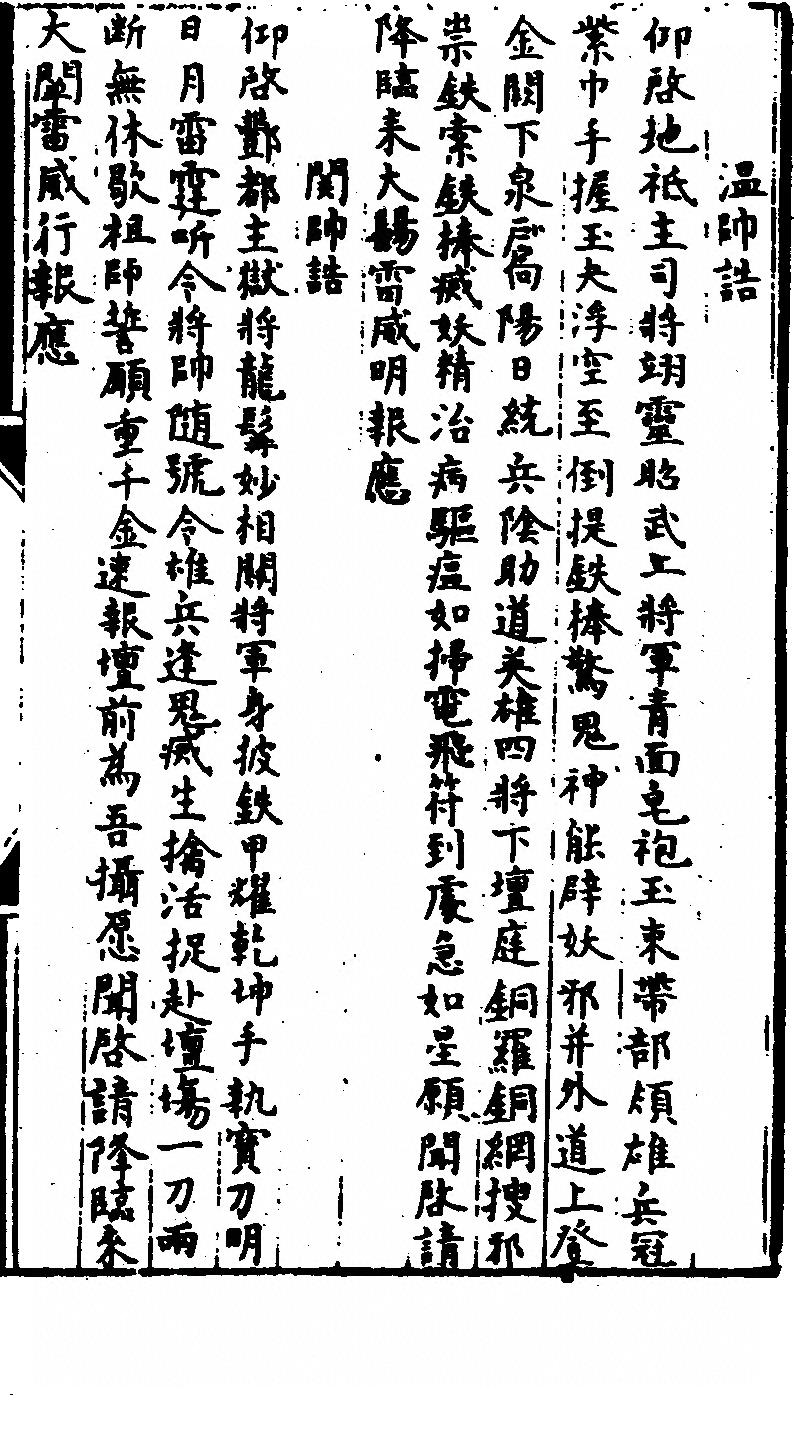 溫帥誥
仰啓地祇主司將翊靈昭武上將軍青面皂袍玉束帶部領雄兵冠
紫巾手握玉夬浮空至倒提鉄捧驚鬼神能辟妖邪并外道上登
金闕下泉扃陽日統兵陰助道英雄四將下壇庭銅羅銅網搜邪
祟鉄索鉄捧滅妖精治病驅瘟如掃電飛符到處急如星願聞啓請
降臨來大賜雷威明報應
関帥誥
仰啓酆都主獄將龍髯妙相關將軍身披鉄甲耀乾坤手執寶刀明
日月雷霆听令將帥随號令雄兵逢鬼滅生擒活捉赴壇塲一刀兩
断無休歇祖師誓願重千金速報壇前為吾攝愿聞啓請降臨來
大闡雷威行報應